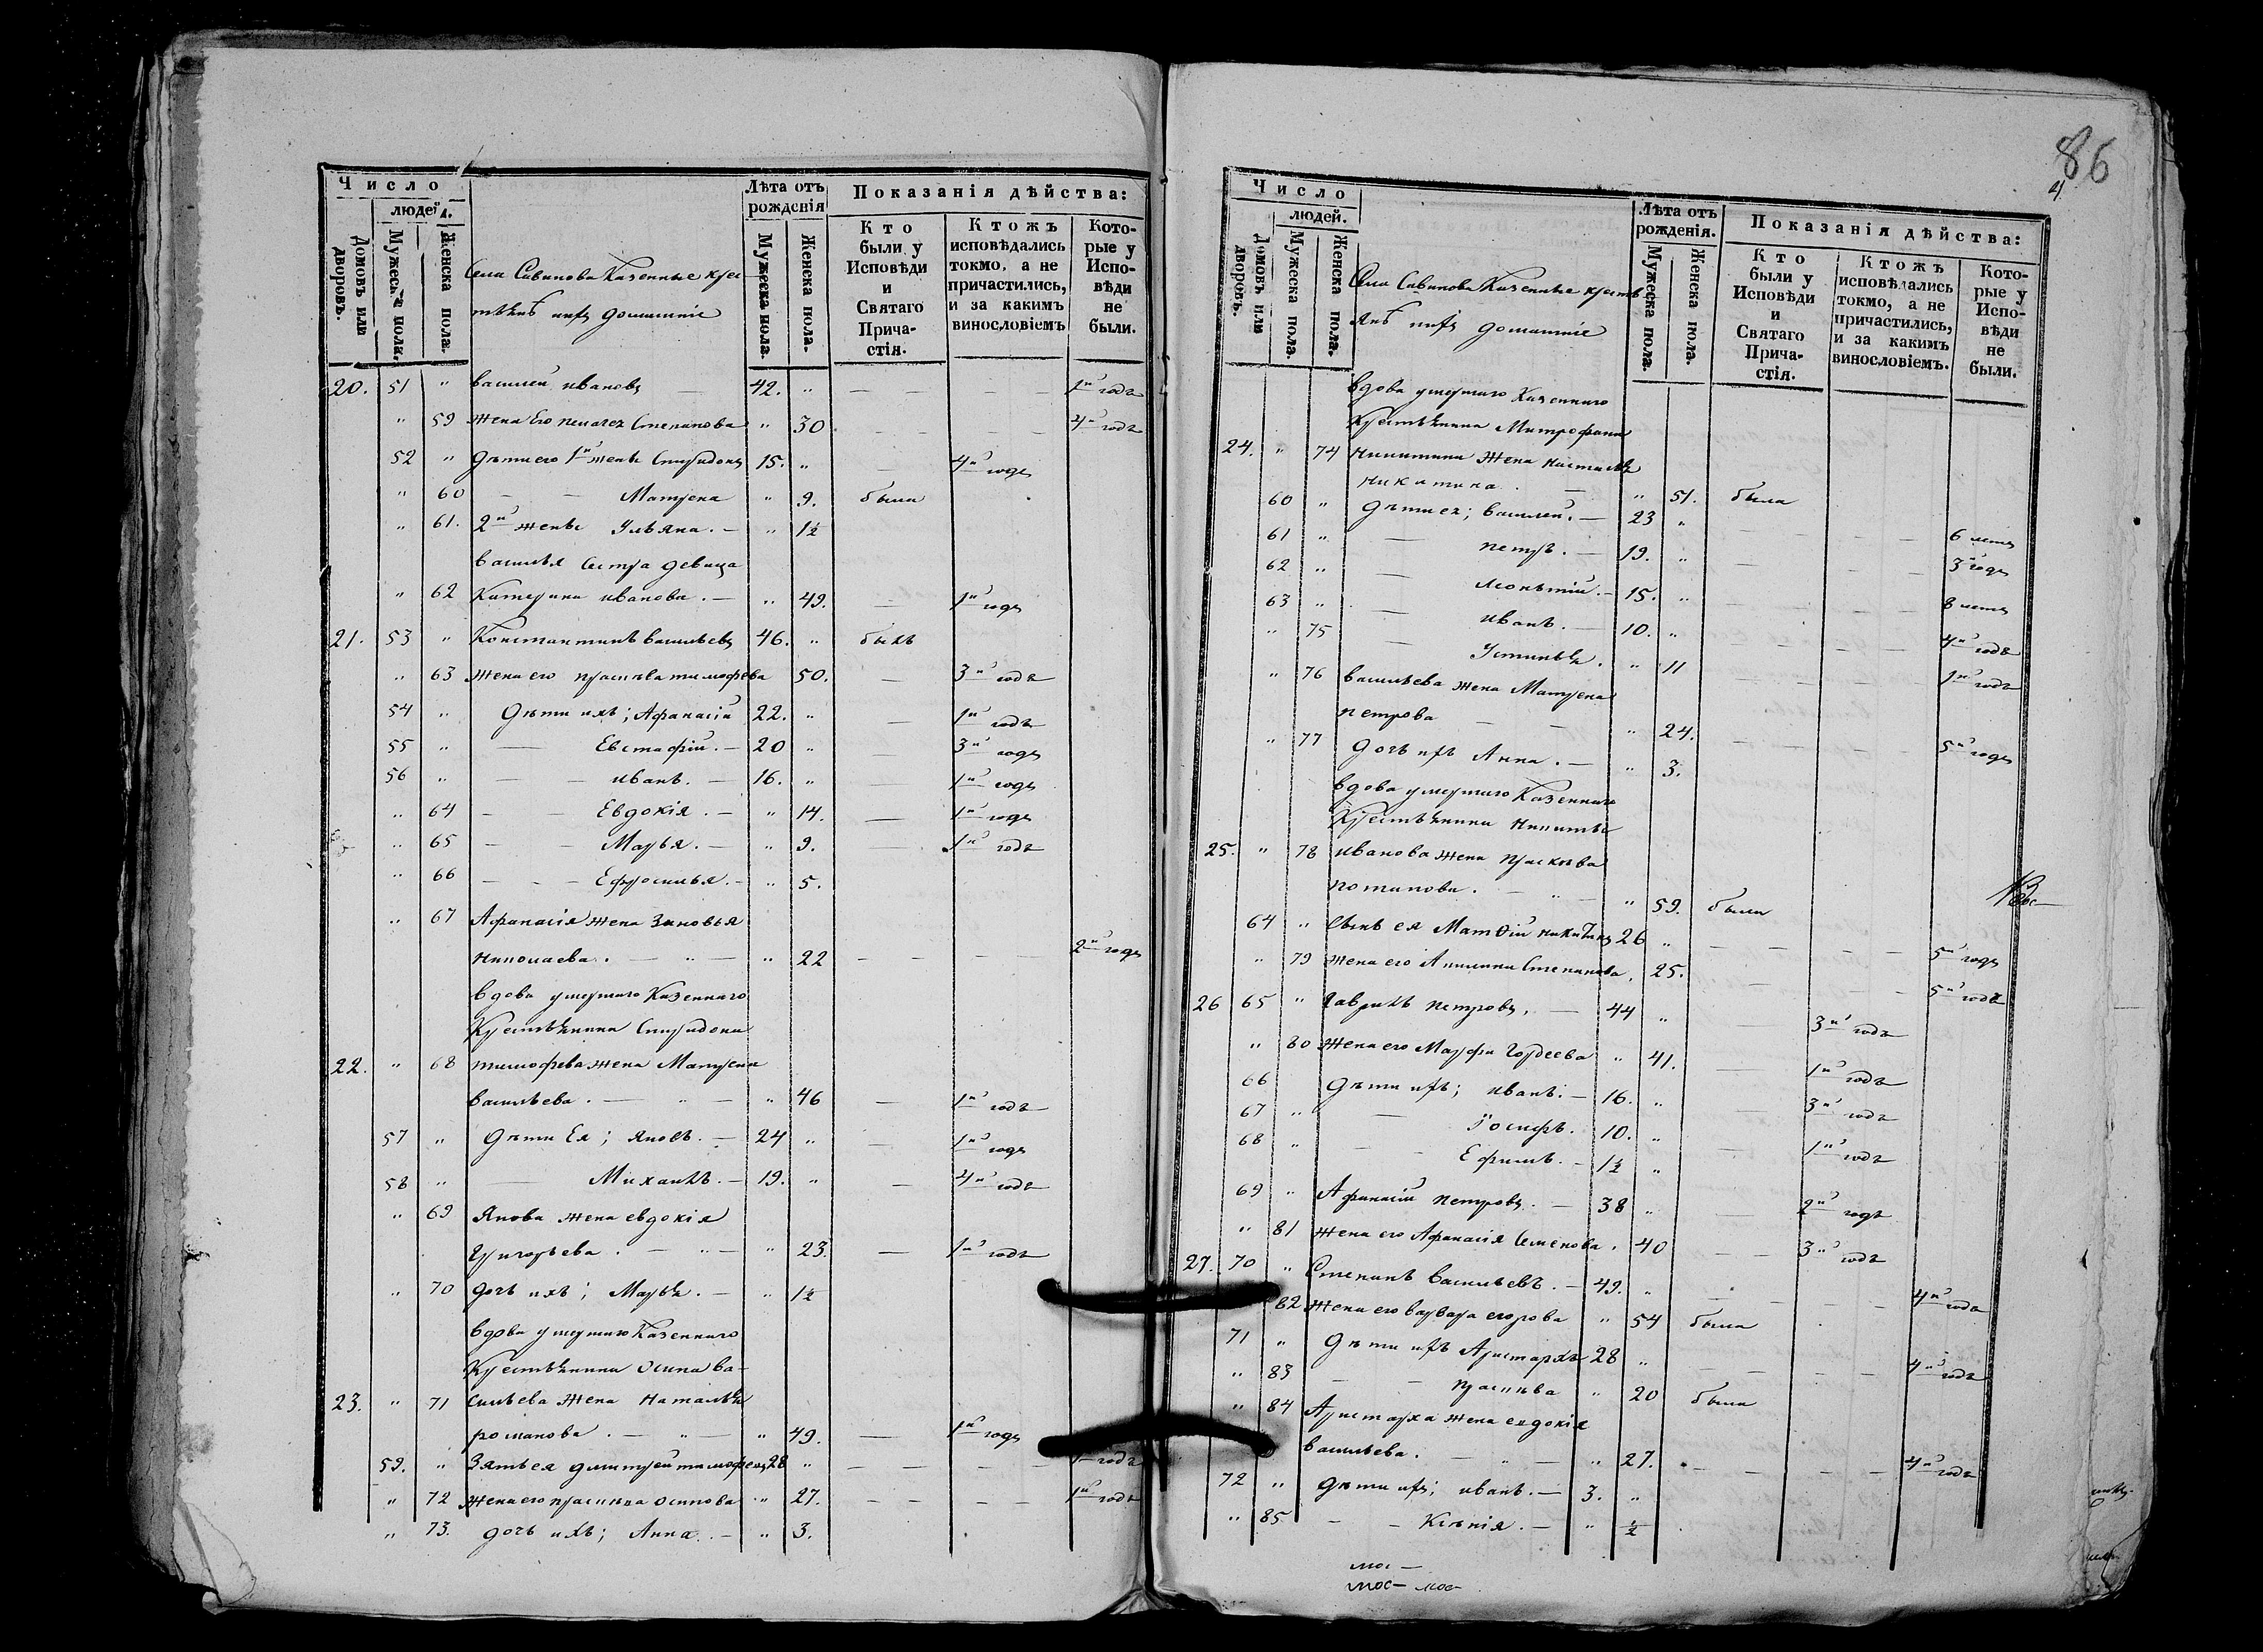 Число
людей.
Домовъ или дворовъ.
Мужеска пола.
Женска пола.
Села Савинова Казенные крес
тьянѣ ихъ домашніе
Лѣта отъ рожденія
Мужеска пола.
Женска пола.
Показанія дѣйства:
Кто были у Исповѣди и Святаго Прича-стія.
Ктожъ исповѣдались токмо, а не причастились, и за какимъ винословіемъ
Кото-рые у Испо-вѣди не были.
20. 51 " василей ивановъ — 42. " — — — — 1й годъ
" 59 жена Его Степанова " 30 — — — — 4й годъ
52 " дѣти его 1й жены Спиридонъ 15. " — 4й годъ
" 60 — — Матрена " 9. была
" 61. 2й жены Ульяна. — " 1½
василья Сестра девица
" 62 Катерина иванова. — " 49. — 1й годъ
21. 53 " Константинъ васильевъ 46. " былъ
" 63 жена его прасковья тимофева 50. — 3й годъ
54 " Дѣти ихъ; Афанасій 22. " — 1й годъ
55 " — Евстафій. — 20 " — 3й годъ
56 " — — иванъ. — 16. " — 1й годъ
" 64 — — Евдокія. — " 14. — 1й годъ
" 65 — — Марья. — " 9. — 1й годъ
" 66 — — — Ефросинья. — " 5.
" 67 Афанасія жена Зиновья
николаева. — " — " 22 — — — 2й годъ
вдова умершаго Казеннаго
Крестьянина Спиридона
22. " 68 тимофева жена Матрена
васильева. — " — " 46 — 1й годъ
57 " Дѣти Ея; яковъ. — 24 " — 1й годъ
58 " — Михаилъ. — 19. " — 4й годъ
" 69 Якова жена евдокія
Григорьева. — " — " 23. — 1й годъ
" 70 дочь ихъ; Марья. — " 1½
вдова умершаго Казеннаго
Крестьянина Осипа ва-
23. " 71 сильева жена Наталья
романова. — " — " 49. — 1й годъ
59. " Зять ея дмитрей тимофеевъ 28 " — — — — 1й годъ
" 72 жена его прасковья осипова " 27. — — — — 1й годъ
" 73. дочь ихъ; Анна. — " 3.
86
Число
людей.
Домовъ или дворовъ.
Мужеска пола.
Женска пола.
Села Савинова Казенные кресть
янѣ ихъ домашніе
Лѣта отъ рожденія.
Мужеска пола.
Женска пола.
Показанія дѣйства:
Кто были у Исповѣди и Святаго Прича-стія.
Ктожъ исповѣдались токмо, а не причастились, и за какимъ винословіемъ.
Кото-рые у Испо-вѣди не были.
вдова умершаго Казеннаго
Крестьянина Митрофана
24. " 74 никитина жена настасья
никитина. — " 51. была
60 " дѣти ея; василей. — 23 " — — — 6 летъ
61 " — петръ. — 19. " — — — 3й годъ
62 " — — 15. " — — — 8 летъ
63 " — иванъ. — 10. " — — — 4й годъ
" 75 — Устинья. " 11 — — — 1й годъ
" 76 васильева жена Матрена
петрова — — " 24. — — — 5й годъ
" 77 дочь ихъ Анна. — " 3.
вдова умершаго Казеннаго
Крестьянина Никиты
25. " 78 иванова жена прасковья
потапова. — " — " 59. была
64 " Сынъ ея Матѳій никитинъ 26 " — — — 5й годъ
" 79 жена его Акилина Степанова. 25. — — — 5й годъ
26 65 " Гаврилъ петровъ. — 44 " — 3й годъ
" 80 жена его Марфа Гордеева " 41. — 1й годъ
66 дѣти ихъ; иванъ. — 16. " — 3й годъ
67 " — Іосифъ. 10. " — 1й годъ
68 " — — Ефимъ. — 1½ "
69 " Афанасій петровъ. — 38 " — 2й годъ
" 81 жена его Афанасія Семенова. 40 — 3й годъ
27. 70 " Степанъ васильевъ. — 49. " — — — 4й годъ
82 жена его варвара егорова " 54 была
71 " Дѣти ихъ Аристархъ 28 " — — — 4й годъ
" 83 — — прасковья " 20 была
" 84 Аристарха жена евдокія
васильева. — " — " 27. — — — — 4й годъ
72 " дѣти ихъ; иванъ. — 3. "
" 85 — — Ксенія. — " ½
мос —
мос — мос —